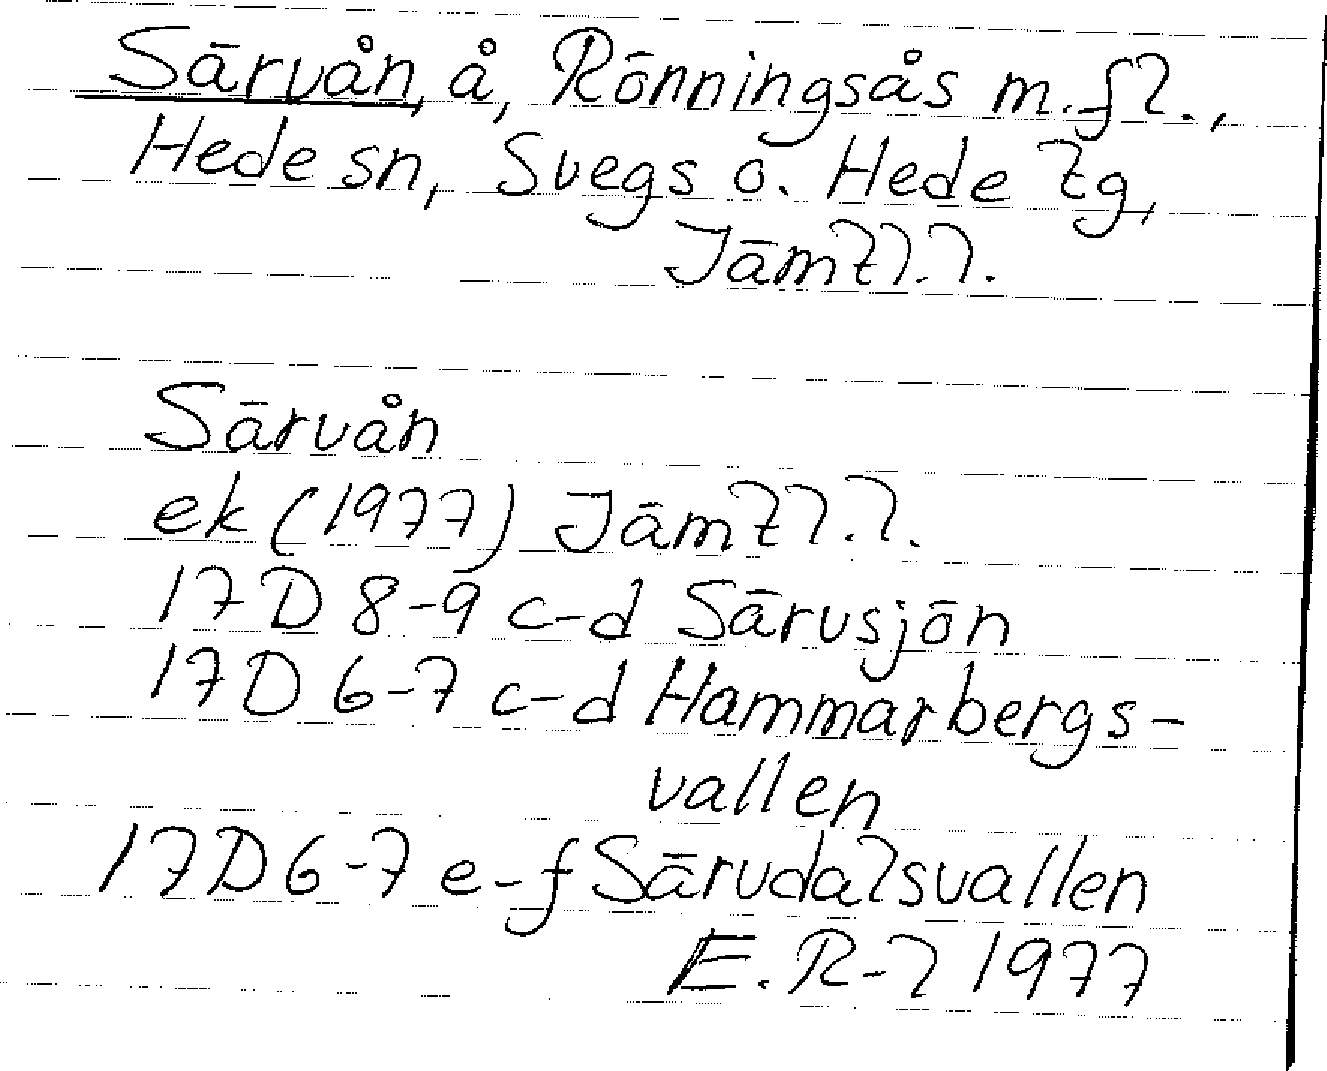 Särvån, å, Rönningsås m.fl.,
Hede sn, Svegs o. Hede tg,
Jämtl.l.
Särvån
ek (1977) Jämtl.l.
17D 8-9 c-d Särvsjön
17D 6-7 c-d Hammarbergs-
vallen
17D 6-7 e-f Särvdalsvallen
E.R-l 1977